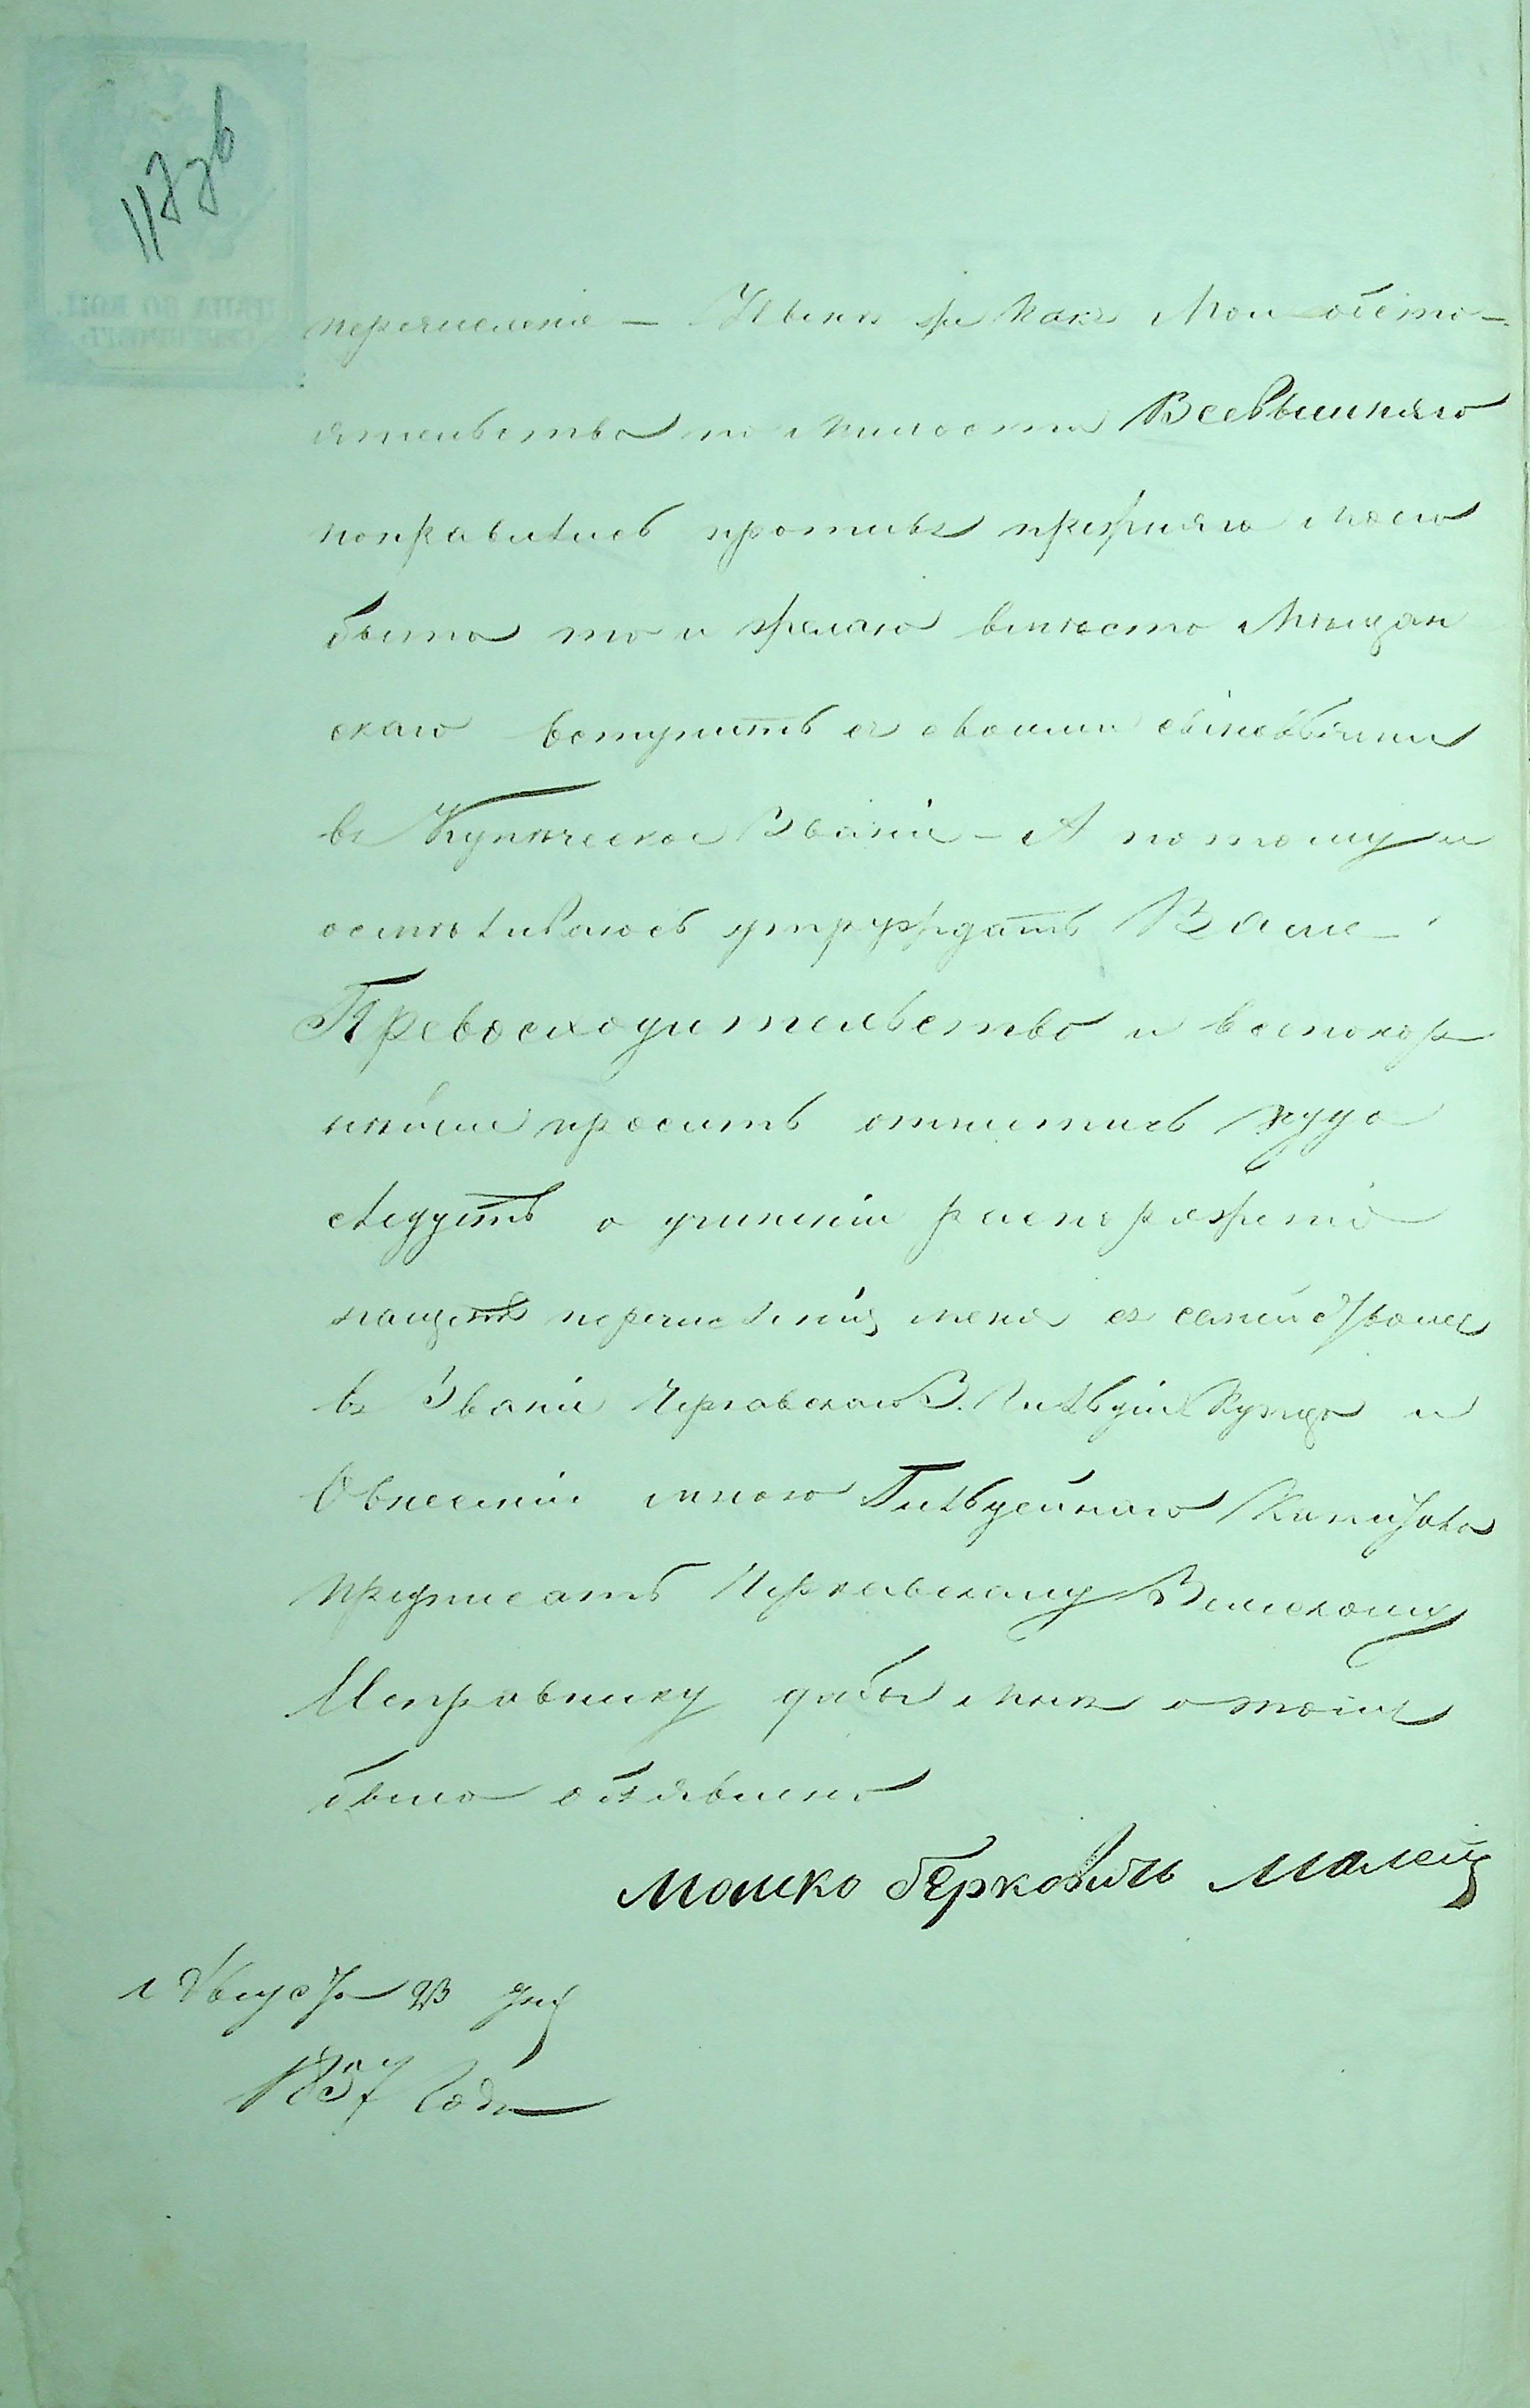 117 зв
перечисленія — Нынѣ же какъ Мои обсто-
ятельства по милости Всевышняго
поправились противъ прежняго моего
быта то и желаю вмѣсто Мѣщан
скаго вступить съ своими сыновьями
въ Купѣческое Званіе — А потому и
осмѣливаюсь утруждать Ваше
Превосходительство и всепокор
нѣйше просить отнестись куда
слѣдуетъ о учиненіи распоряженія
нащетъ перечисленія меня съ семействомъ
въ Званіе Черкаскаго 3. Гильдіи Купца и
О внесеніи мною Гильдейнаго Капитала
предписать Черкаскому Земскому
Исправнику дабы мнѣ о томъ
было объявлено
Мошко Берковичь Малец
Августа 23 дня
1857 Года